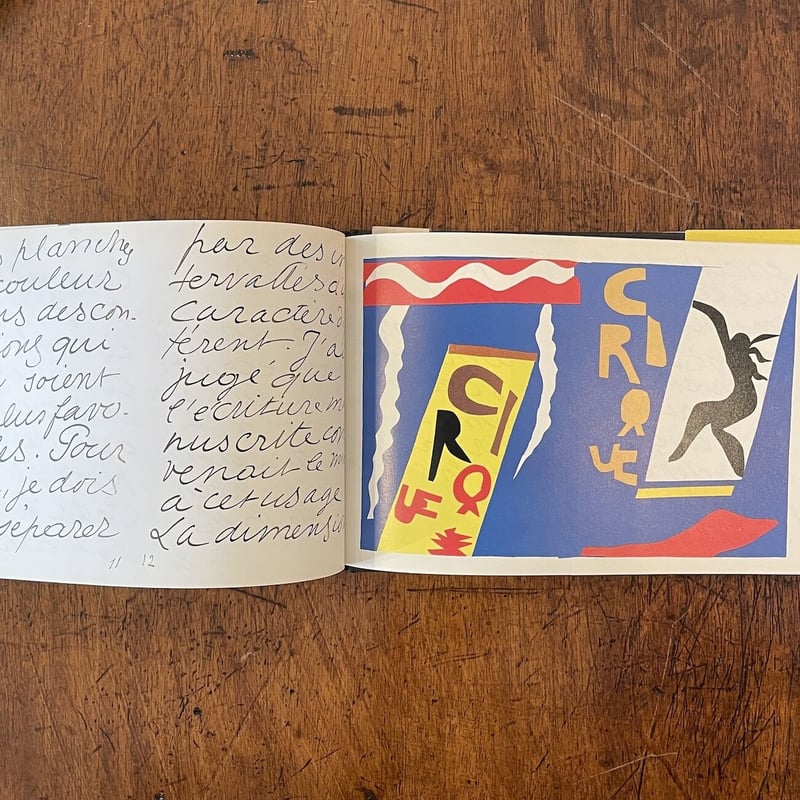 s planches
couleur
ns des con-
ions qui
soient
lus favo-
es. Pour
, je dois
séparer
11
par des in
tervalles d
caractère d
férent. J'ai
jugé que
l'écriture m
nuscrite con
venait le m
à cet usage
La dimensio
12
CIRQUE
CIRQUE